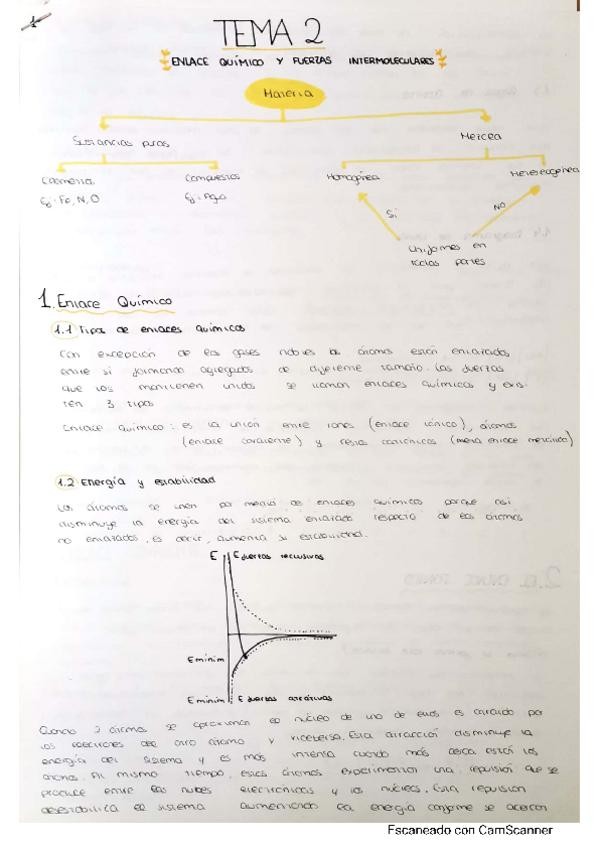 TEMA 2
ENLACE QUÍMICO Y FUERZAS INTERMOLECULARES
Materia
Sustancias puras
Mezcla
Elementa
Compuestos
Homogénea
Heterogénea
Ej: Fe, N, O
Ej: Agua
Si
NO
Uniformes en
todas partes
1. Enlace Químico
1.1 Tipos de enlaces químicos
Con excepción de los gases nobles los átomos están enlazados
entre sí formando agregados de diferente tamaño. Las fuerzas
que los mantienen unidos se llaman enlaces químicos y exis
ten 3 tipos
Enlace químico: es la unión entre iones (enlace iónico), átomos
(enlace covalente) y restos catiónicos (enlace metálico)
1.2 Energía y estabilidad
Los átomos se unen por medio de enlaces químicos porque así
disminuye la energía del sistema enlazado respecto de los átomos
no enlazados, es decir, aumenta su estabilidad.
E
E fuerzas repulsivas
E minim
E minim
E fuerzas atractivas
Cuando 2 átomos se aproximan el núcleo de uno de ellos es atraido por
los electrones del otro átomo y viceversa. Esta atracción disminuye la
energía del sistema y es más intensa cuando más cerca estén los
átomos. Al mismo tiempo, estos átomos experimentan una repulsión que se
produce entre las nubes electrónicas y los núcleos. Esta repulsión
desestabiliza el sistema aumentando la energía conforme se acercan
Escaneado con CamScanner